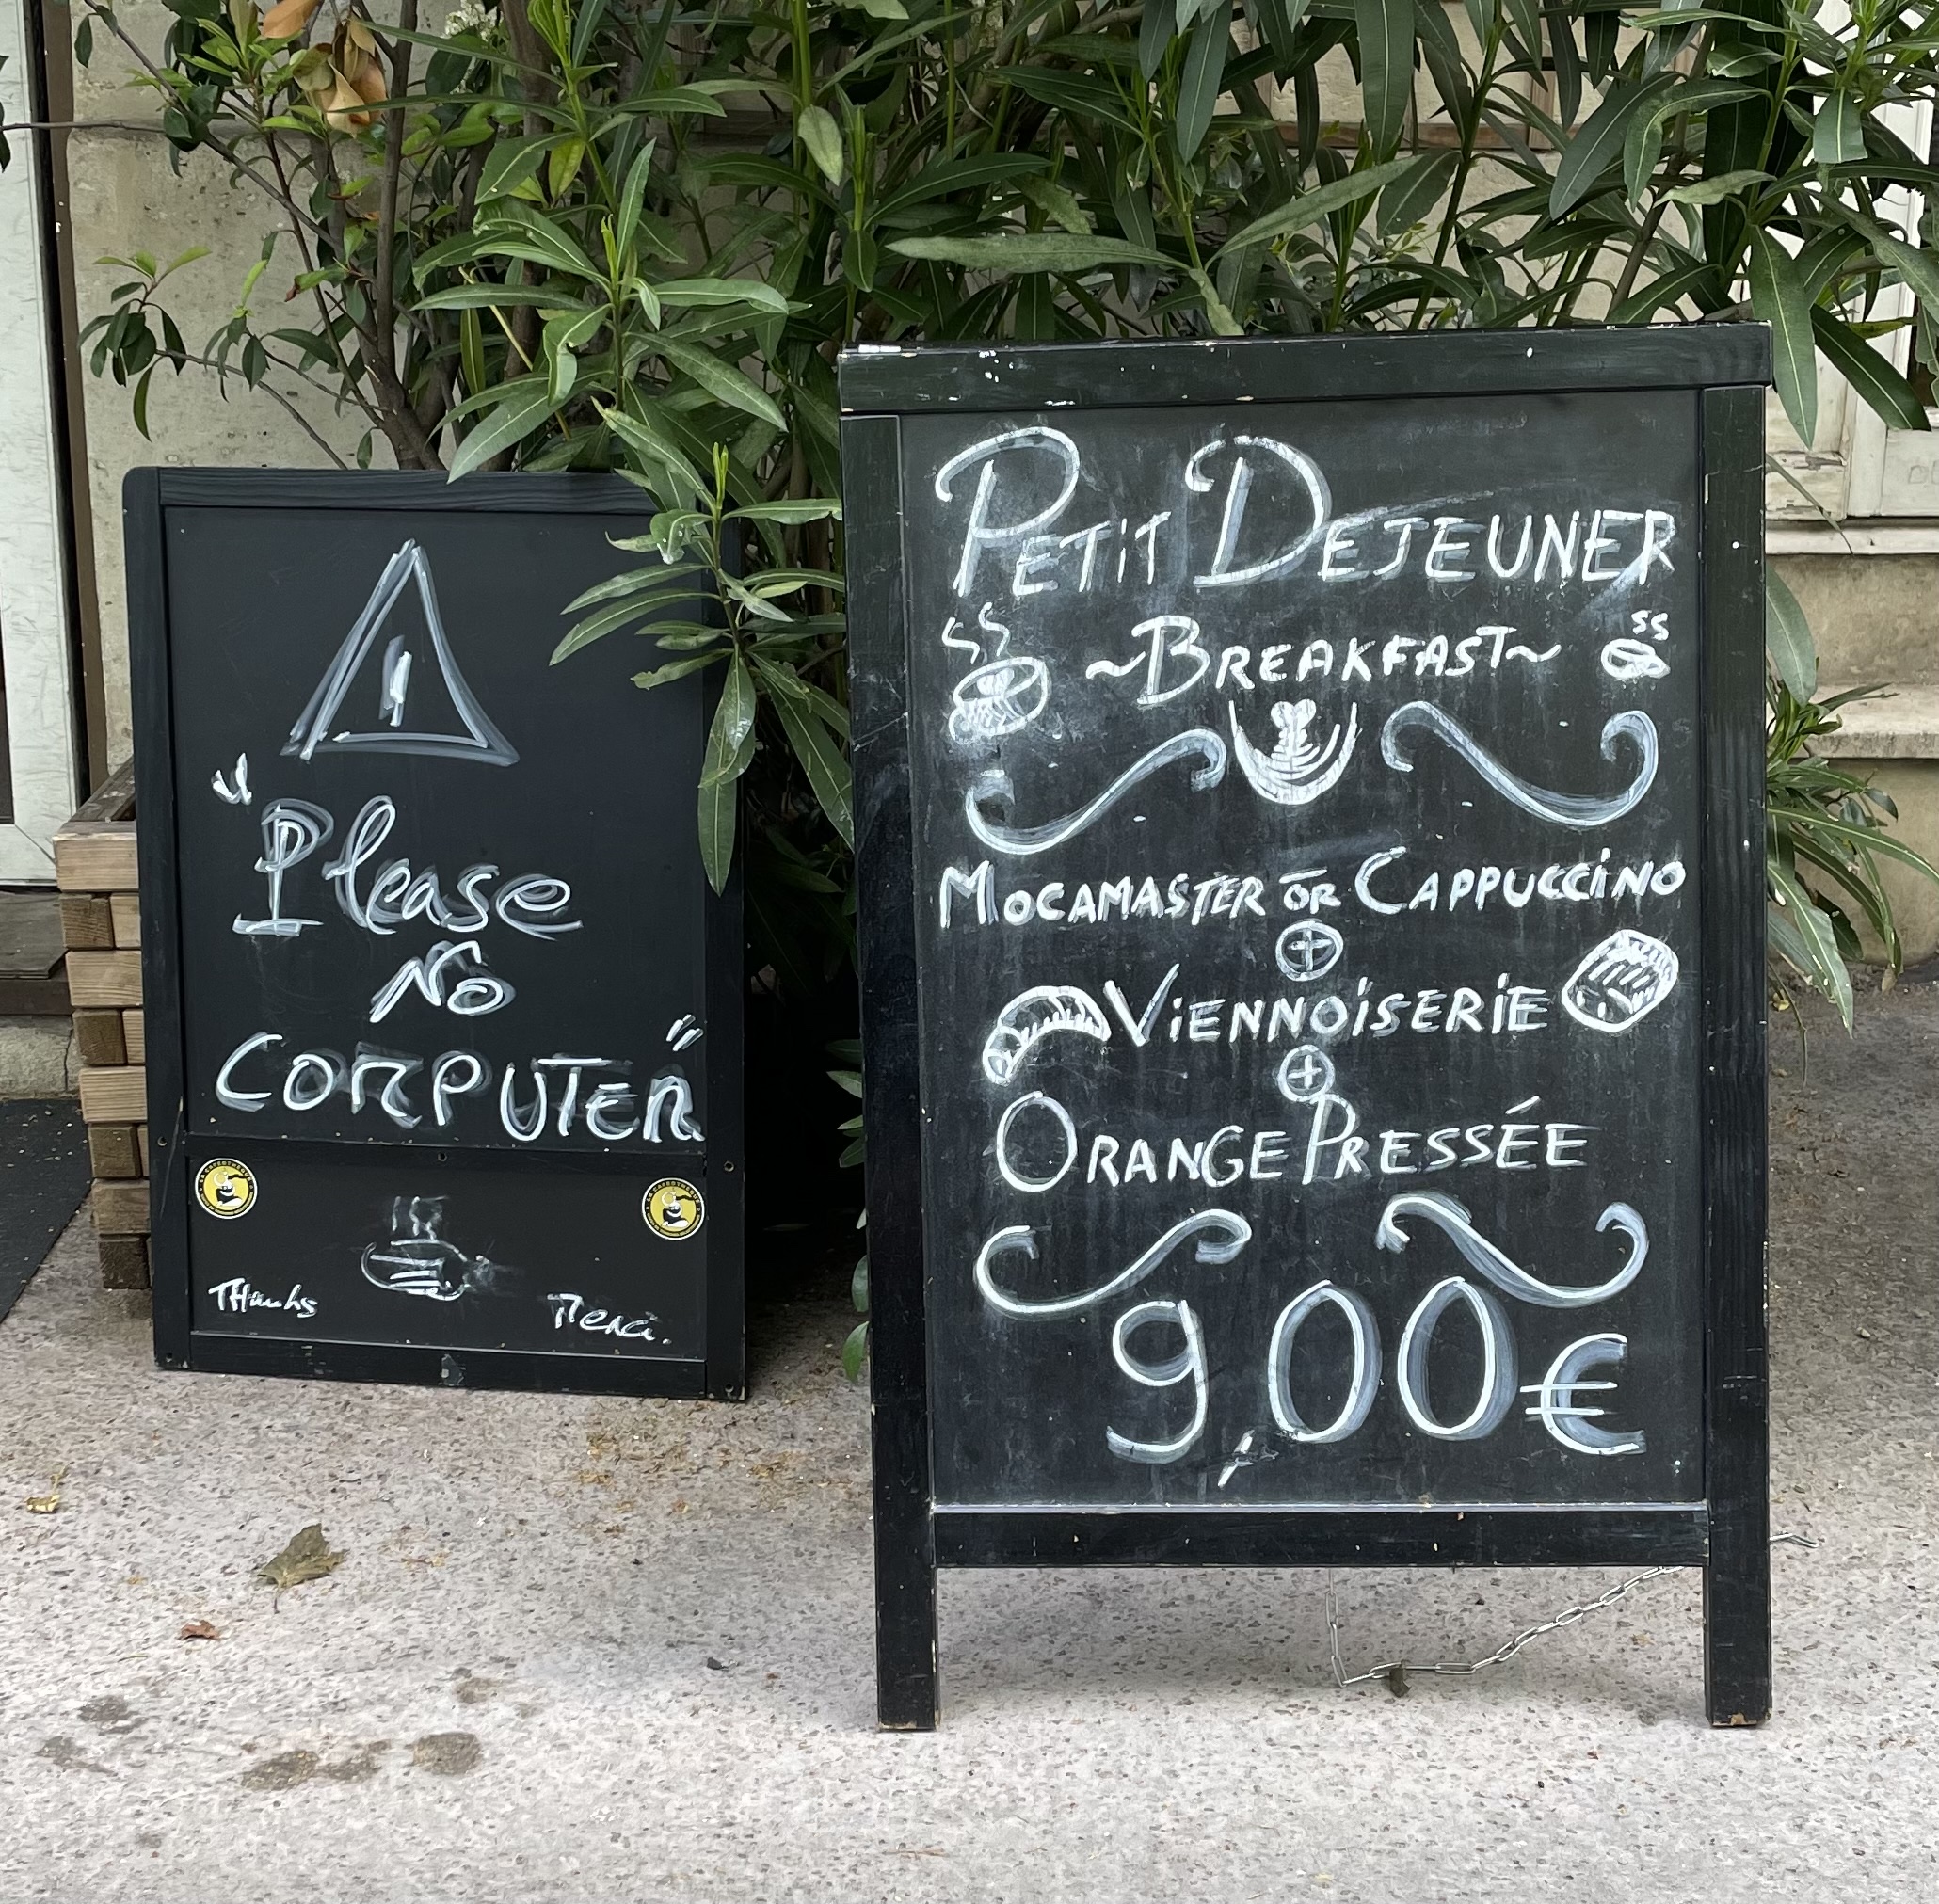 "Please
No
COMPUTER"
THanks
Merci.
PETiT DEJEUNER
~BREAKFAST~
MOCAMASTER OR CAPPUCCiNO
+
ViENNOiSERiE
+
ORANGE PRESSÉE
9,00€